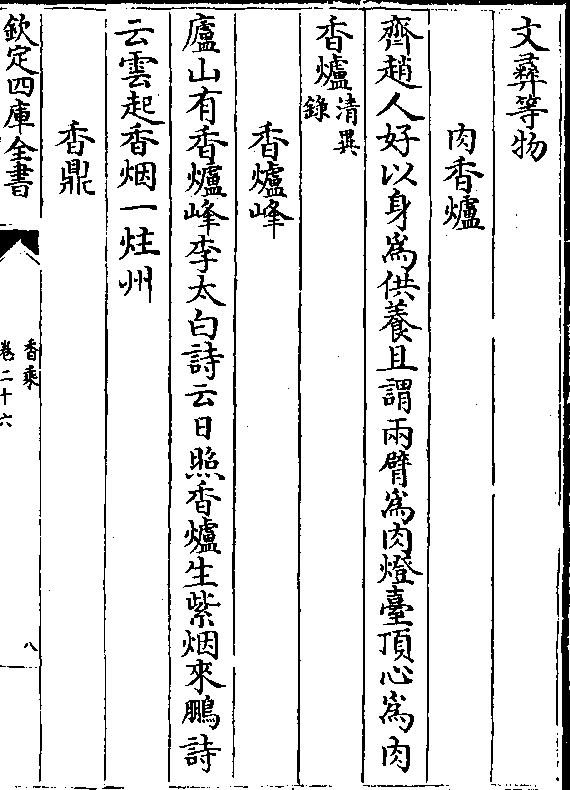 文彞等物
肉香爐
齊趙人好以身為供養且謂兩臂為肉燈臺頂心為肉
香爐清異錄
香爐峰
廬山有香爐峰李太白詩云日照香爐生紫烟來鵬詩
云雲起香烟一炷州
香鼎
欽定四庫全書
香乘
卷二十六
八